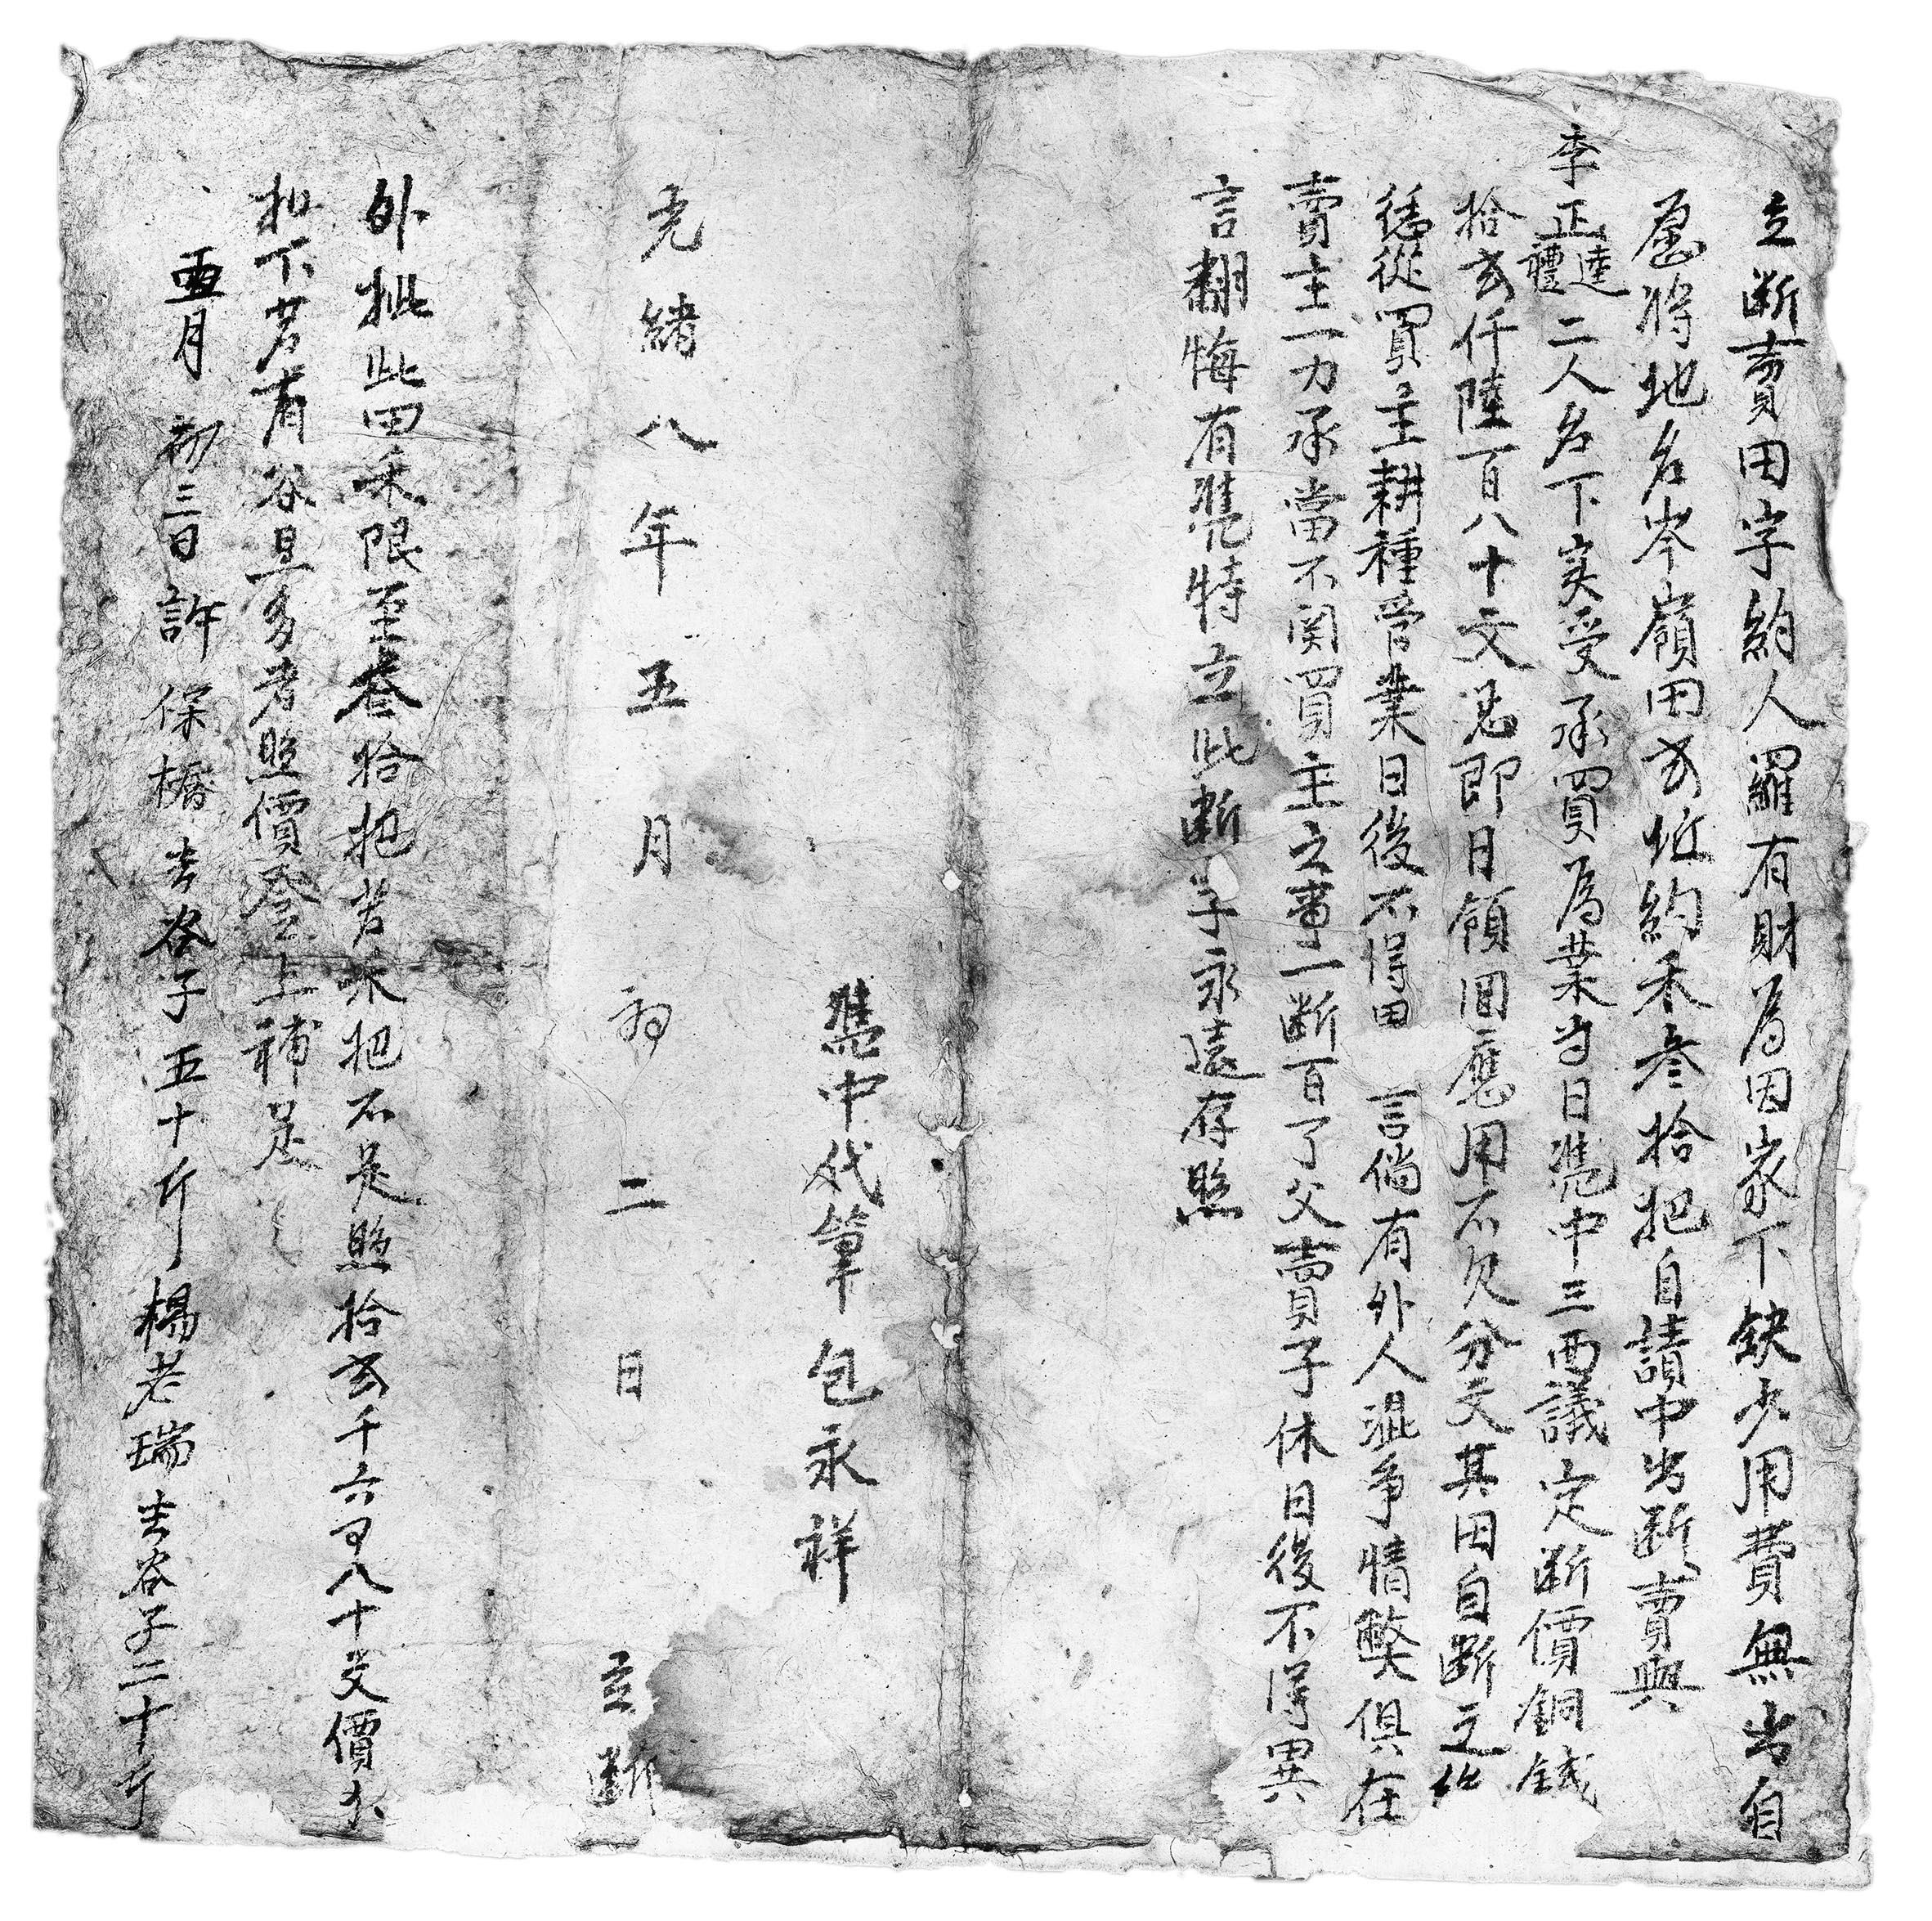 立断賣田字約人羅有財為因家下缺少用費無出自
愿将地名岑嶺田弍坵約禾叄拾把自請中出断賣與
李正達禮二人名下实受承買為業当日凴中三面議定断價銅錢
拾弍仟陸百八十文足即日領回應用不欠分文其田自断之後
任從買主耕種管業日後不得田 言倘有外人混争情弊俱在
賣主一力承當不関買主之事一断百了父賣子休日後不得異
言翻悔有凴特立此断字永遠存照
凴中代筆包永祥
光緒八年五月初二日 立断
外批此田禾限至叄拾把若禾把不足照拾弍千六百八十文價小
扣下若有谷旦多者照價登上補足
五月初三日許保橋去谷子五十斤楊老瑞去谷子二十斤